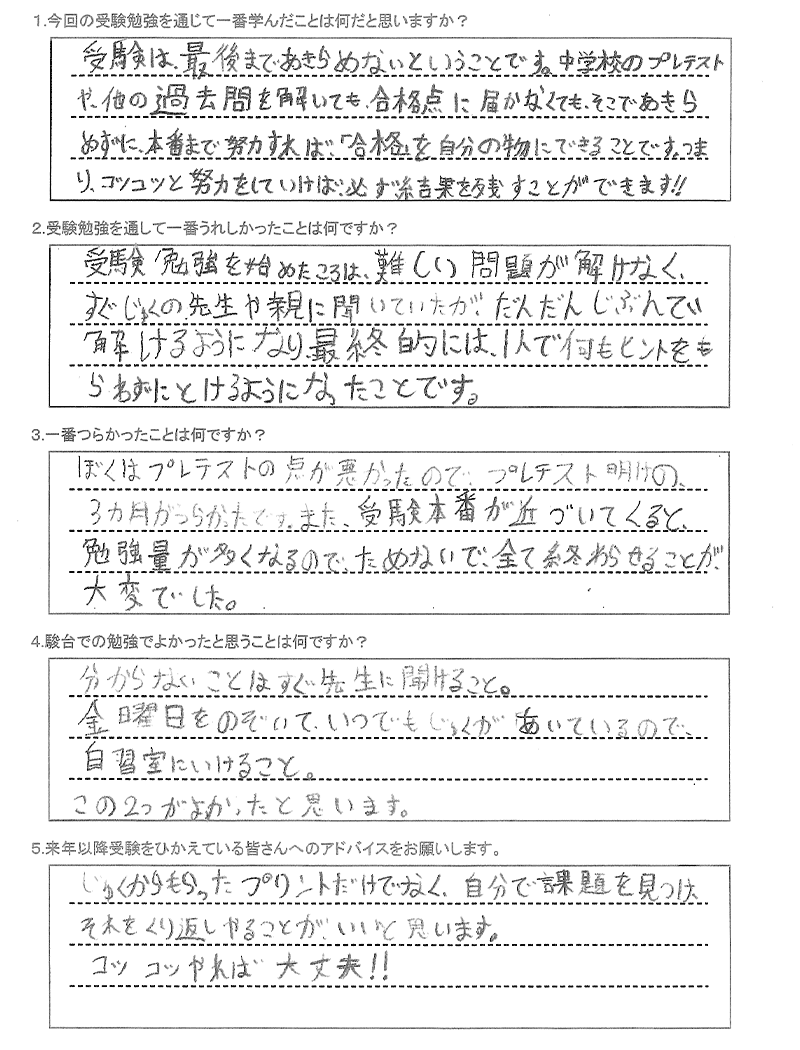 1.今回の受験勉強を通じて一番学んだことは何だと思いますか？
受験は、最後まであきらめないということです。中学校のプレテスト
や、他の過去問を解いても、合格点に届かなくても、そこであきら
めずに、本番まで努力すれば、「合格」を自分の物にできることです。つま
り、コツコツと努力をしていけば、必ず結果を残すことができます!!
2.受験勉強を通して一番うれしかったことは何ですか？
受験勉強を始めたころは、難しい問題が解けなく、
すぐじゅくの先生や親に聞いていたが、だんだんじぶんでい
解けるようになり、最終的には、1人で何もヒントをも
らわずにとけるようになったことです。
3.一番つらかったことは何ですか？
ぼくはプレテストの点が悪かったので、プレテスト明けの、
3カ月がつらかったです。また、受験本番が近づいてくると、
勉強量が多くなるので、ためないで、全て終わらせることが、
大変でした。
4.駿台での勉強でよかったと思うことは何ですか？
分からないことはすぐ先生に聞けること。
金曜日をのぞいて、いつでもじゅくが開いているので、
自習室にいけること。
この2つがよかったと思います。
5.来年以降受験をひかえている皆さんへのアドバイスをお願いします。
じゅくからもらったプリントだけでなく、自分で課題を見つけ、
それをくり返しやることが、いいと思います。
コツコツやれば大丈夫!!